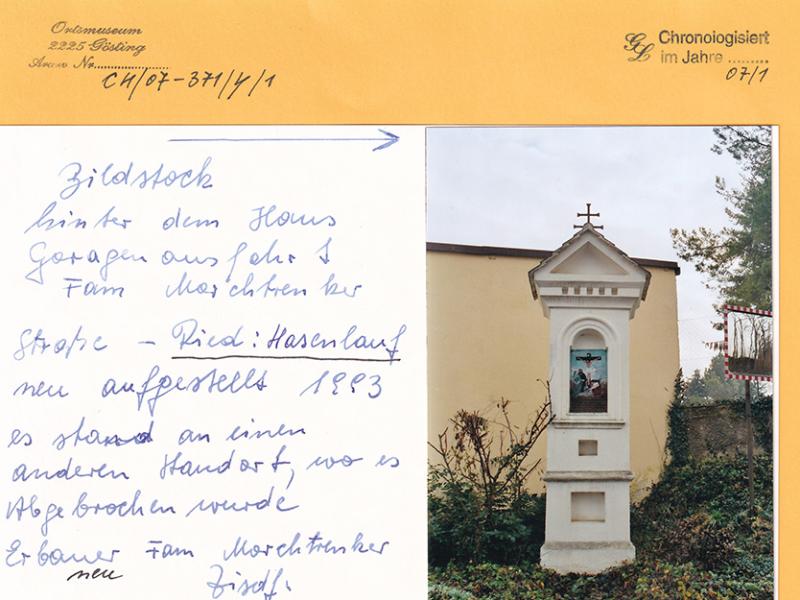 Ortsmuseum
2225 Gösting
Archiv Nr. CH/07-371/4/1
GL Chronologisiert
im Jahre
07/1
Bildstock
hinter dem Haus
Garagenausfahrt
Fam Marchtrenker
Straße - Ried: Hasenlauf
neu aufgestellt 1993
es stand an einen
anderen Standort, wo es
Abgebrochen wurde
Erbauer Fam Marchtrenker
neu